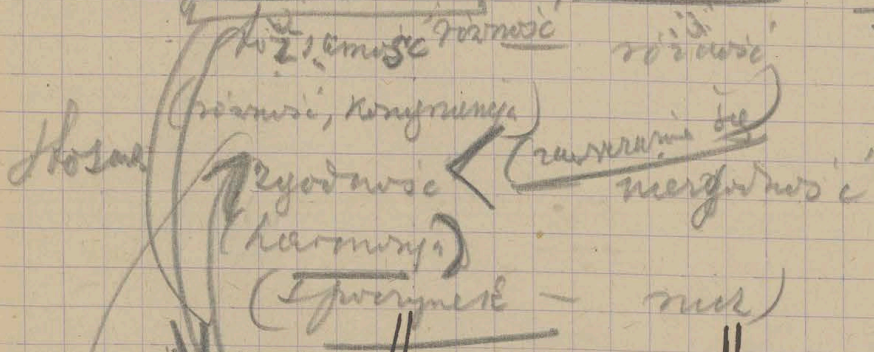 tożsamość równość różność
(równość, kongruencja)
Stosun. zgodność < (zawieranie się) niezgodność
(harmonja)
(spoczynek — ruch)